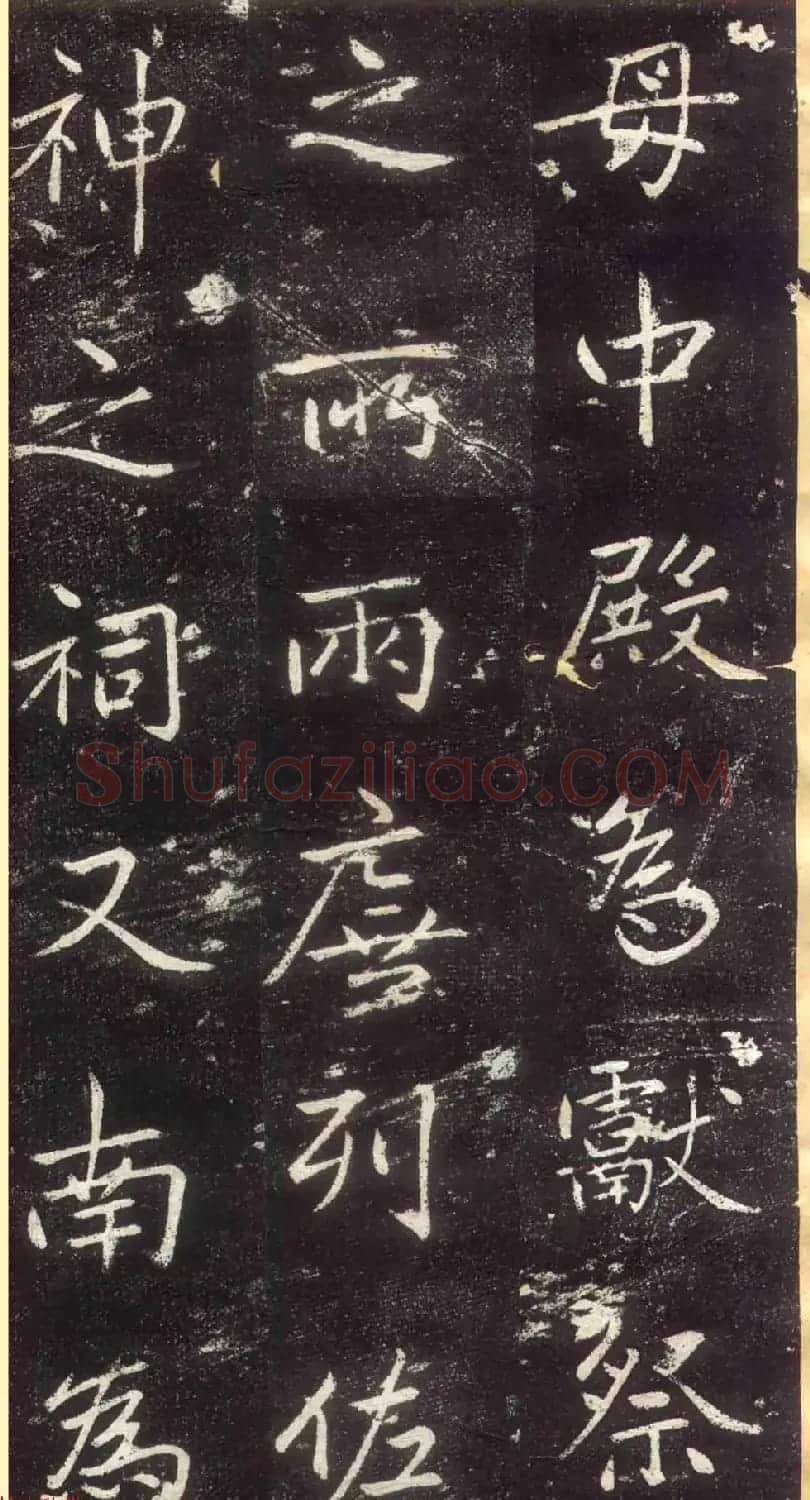 毋中殿為獻祭
之所兩廡列佐
神之祠又南為
Shufaziliao.COM